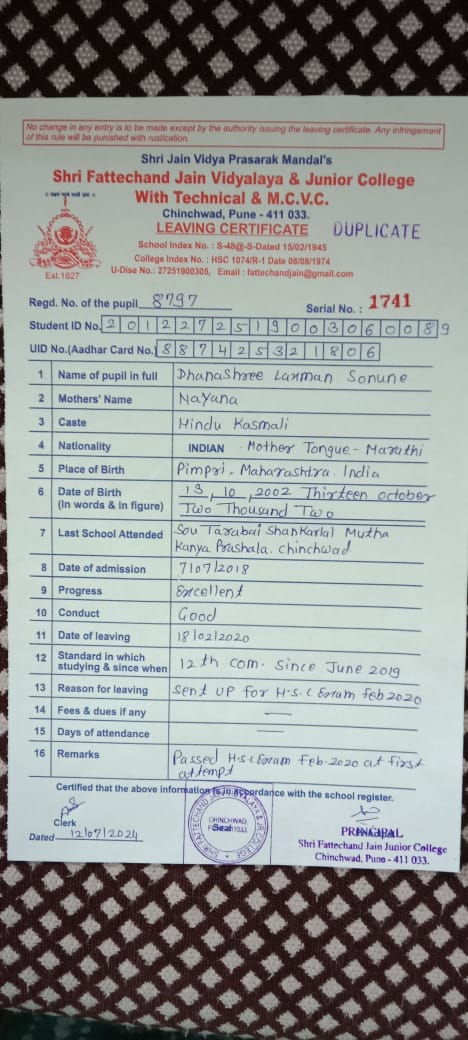 No change in any entry is to be made except by the authority issuing the leaving certificate. Any infringement
of this rule will be punished with rustication.
Shri Jain Vidya Prasarak Mandal's
Shri Fattechand Jain Vidyalaya & Junior College
With Technical & M.C.V.C.
Chinchwad, Pune - 411 033.
LEAVING CERTIFICATE DUPLICATE
School Index No. : S-48@-S-Dated 15/02/1945
College Index No. : HSC 1074/R-1 Date 08/08/1974
U-Dise No.: 27251900305, Email : fattechandjain@gmail.com
Est.1927
Regd. No. of the pupil 8797
Serial No. : 1741
Student ID No. 2012272519003060089
UID No.(Aadhar Card No.) 887425321806
1 Name of pupil in full Dhanashree Laxman Sonune
2 Mothers' Name Nayana
3 Caste Hindu Kasmali
4 Nationality INDIAN . Mother Tongue - Marathi
5 Place of Birth Pimpri. Maharashtra. India
6 Date of Birth 13, 10, 2002 Thirteen october
(In words & in figure) Two Thousand Two
7 Last School Attended Sou Tarabai Shankarlal Mutha
Kanya Prashala. chinchwad
8 Date of admission 7/07/2018
9 Progress Excellent
10 Conduct Good
11 Date of leaving 18/02/2020
12 Standard in which
studying & since when 12th com. Since June 2019
13 Reason for leaving Sent up for H.S.C Exam feb 2020
14 Fees & dues if any —
15 Days of attendance —
16 Remarks Passed H.S.C Exam Feb-2020 at first
attempt
Certified that the above information is in accordance with the school register.
Clerk
Dated 12/07/2024
SHRI FATTECHAND JAIN VIDYALAYA & JR. COLLEGE
CHINCHWAD,
Seal
PRINCIPAL
Shri Fattechand Jain Junior College
Chinchwad, Pune - 411 033.